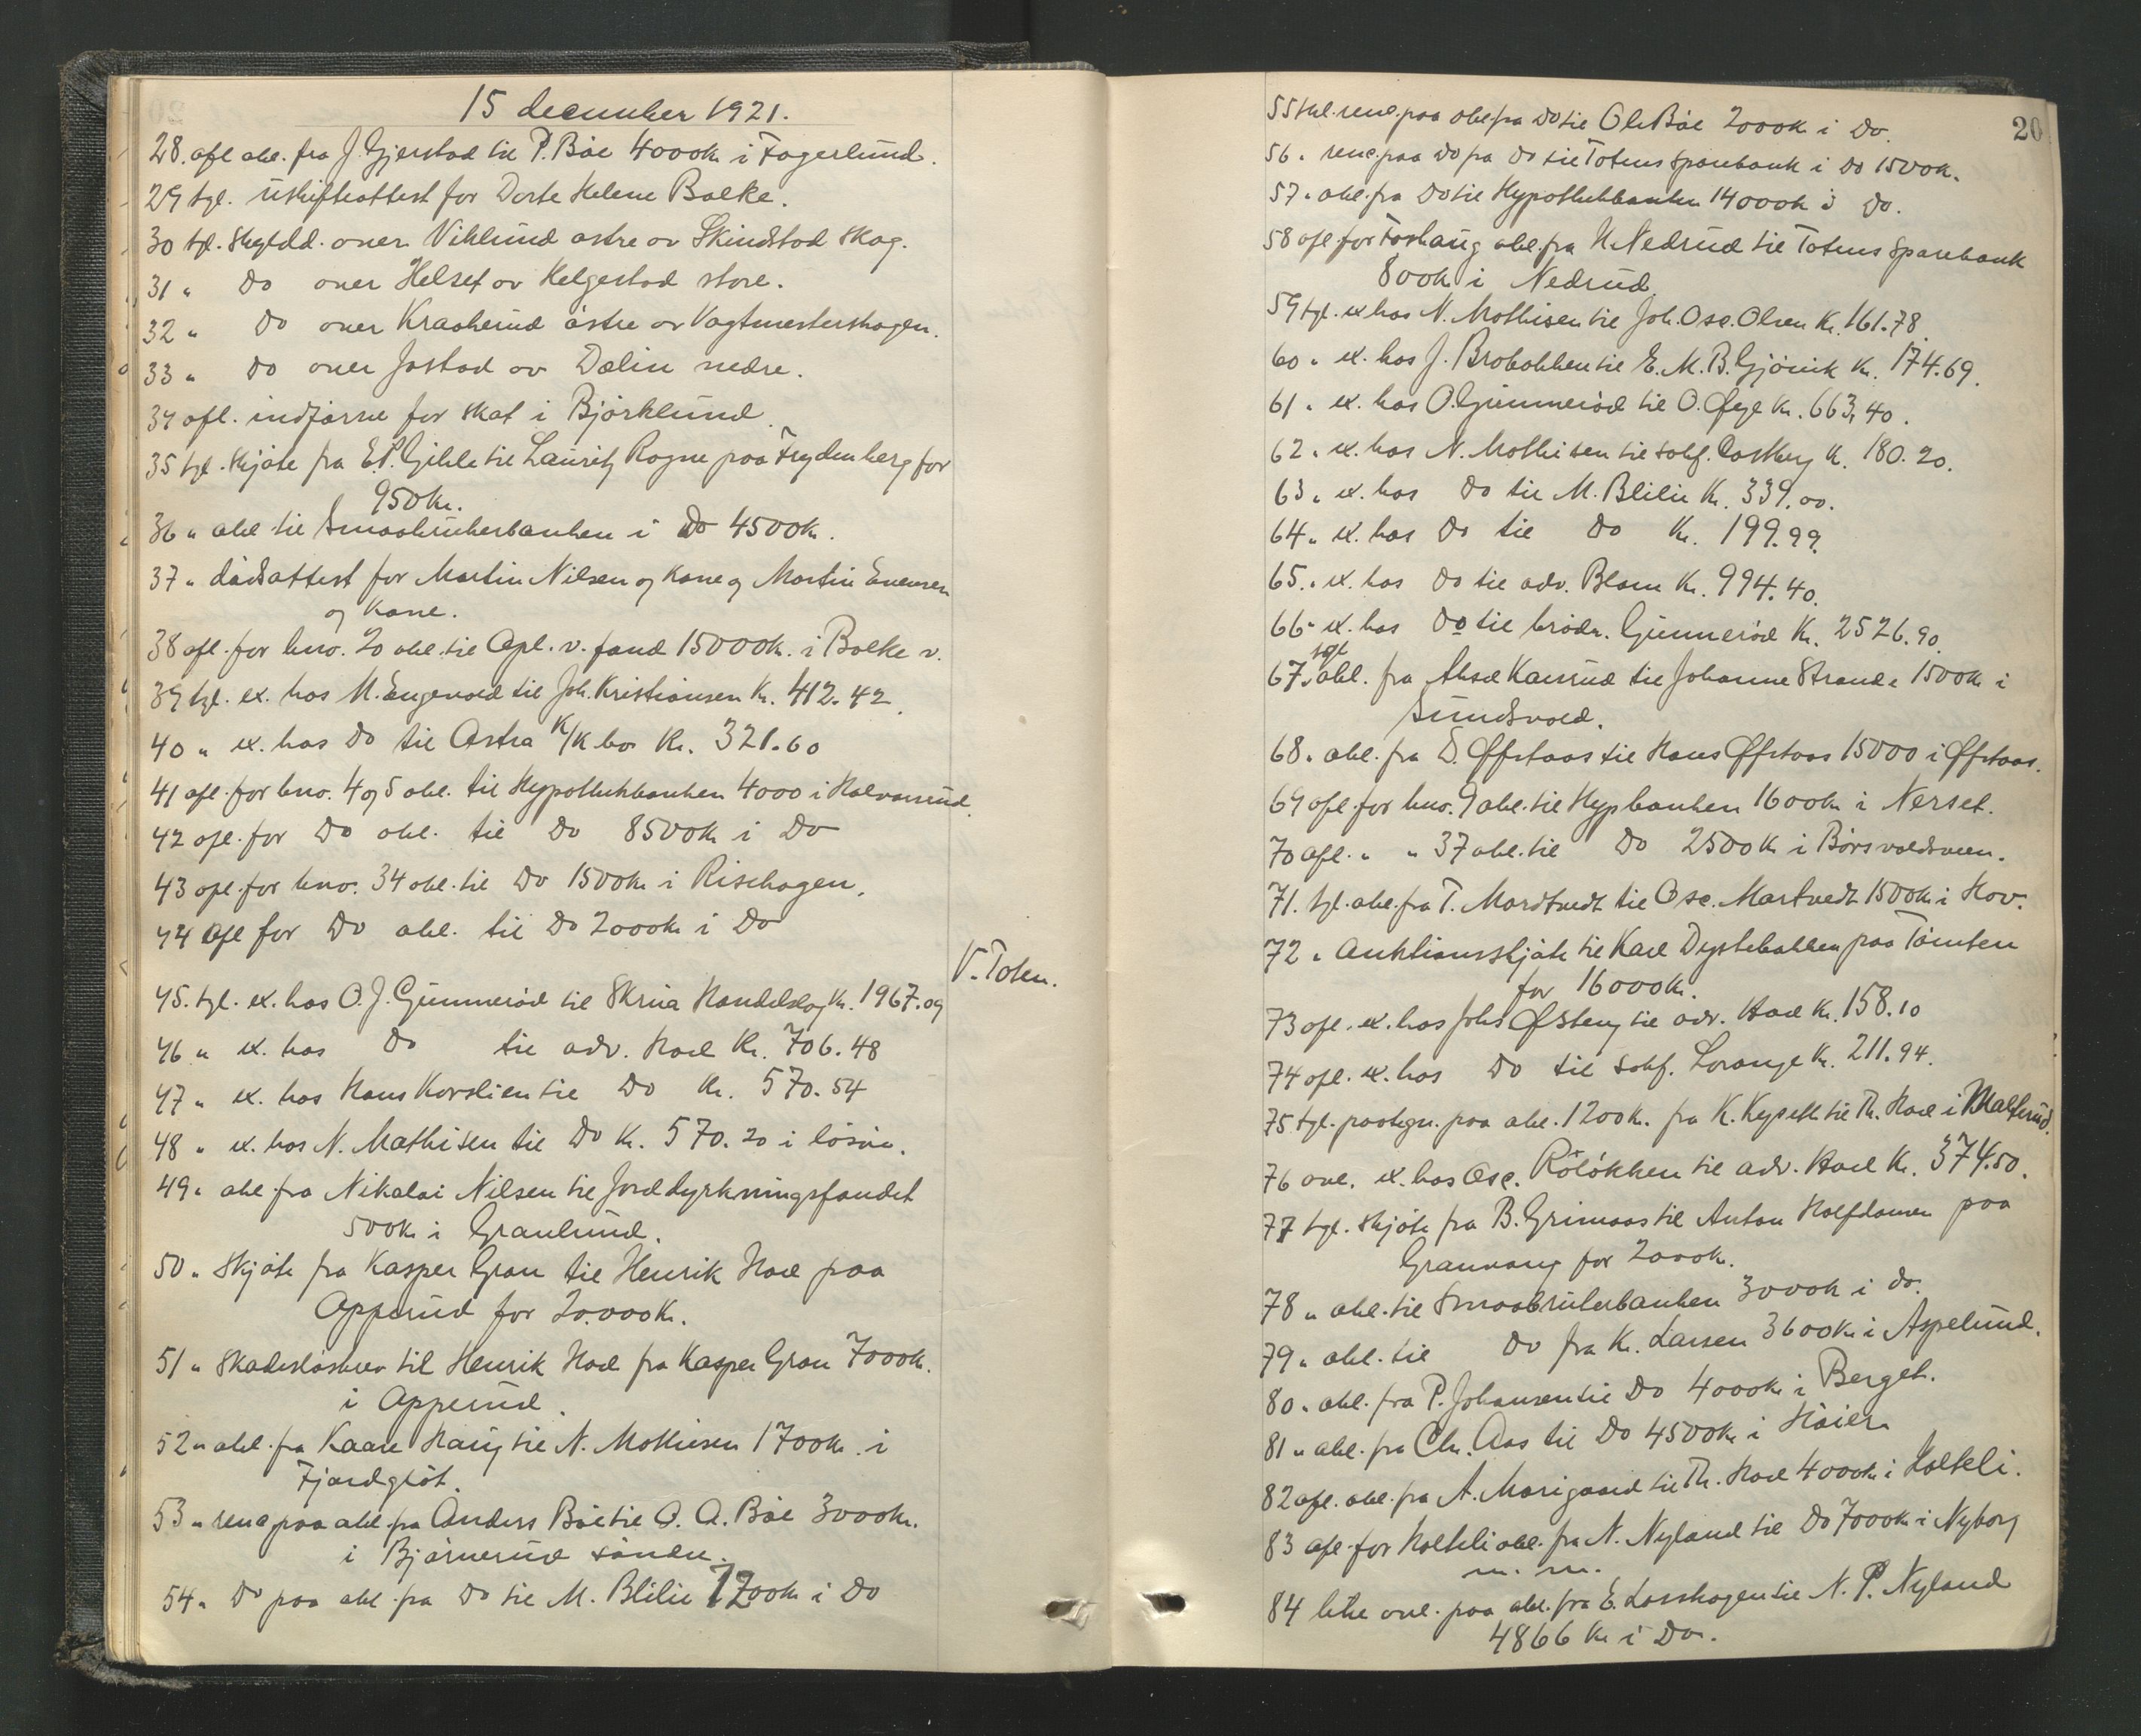 15 december 1921.
28. afl obl. fra J. Gjerstad til P. Bøe 4000 kr i Fagerlund.
29 tgl. uskifteattest for Dorte Helene Bolke.
30 tgl. skyldd. over Viklund østre av Skindstad skog.
31 " Do over Helset av Helgestad store.
32 " Do over Kraakerud østre av Vagtmestershagen.
33 " Do over Jøstad av Dælin nedre.
34 afl. indførsne for skat i Bjørklund.
35 tgl. skjøte fra E.P. Gihle til Lauritz Rogne paa Frydenberg for
950 kr.
36 " obl til Smaabrukerbanken i Do 4500 kr.
37 " dødsattest for Martin Nilsen og kone og Martin Evensen
og kone.
38 afl. for bno. 20 obl. til Opl. v. fond 15000 kr. i Bolke v.
39 tgl. ex. hos M. Engevold til Joh. Kristiansen Kr. 412.42.
40 " ex. hos Do til Astra K/K bo Kr. 321.60
41 afl. for bno. 4 og 5 obl. til Hypothekbanken 4000 i Halvorsrud.
42 afl. for Do obl. til Do 8500 kr i Do
43 afl. for bno. 34 obl. til Do 1500 kr i Rischagen.
44 afl for Do obl. til Do 2000 kr i Do
V. Toten.
45. tgl. ex. hos O. J. Gunnerød til Skrua Handelslag Kr. 1967.09
46 " ex. hos Do til adv. Hoel Kr. 706.48
47 " ex. hos Hans Korslien til Do Kr. 570.54
48 " ex. hos N. Mathisen til Do Kr. 570.20 i løsøre.
49 " obl fra Nikolai Nilsen til Jorddyrkningsfondet
500 kr i Granlund.
50 " Skjøte fra Kasper Gran til Henrik Hoel paa
Opperud for 20.000 kr.
51 " Skadesløsbrev til Henrik Hoel fra Kasper Gran 7000 kr.
i Opperud.
52 " obl. fra Kaare Haug til N. Mathisen 1700 kr. i
Fjordgløt.
53 " rene paa obl. fra Anders Bøe til O. A. Bøe 3000 kr.
i Bjørnerud søndre.
54 " Do paa obl fra Do til M. Blilie 1200 kr i Do
20
55 tgl. rene. paa obl. fra Do til Ole Bøe 2000 kr i Do.
56 " rene. paa Do fra Do til Totens Sparebank i Do 1500 kr.
57 " obl. fra Do til Hypothekbanken 14000 kr i Do.
58 afl for Foshaug obl. fra N. Nedrud til Totens Sparebank
800 kr i Nedrud.
59 tgl. ex hos N. Mathisen til Joh. Osc. Olsen Kr. 161.78.
60 " ex. hos J. Brobakken til E. M. B. Gjøvik Kr. 174.69.
61 " ex. hos O. Gunnerød til O. Øye Kr. 663.40.
62 " ex. hos N. Mathisen til sakf. Castberg Kr. 180.20.
63 " ex. hos Do til M. Blilie Kr. 339.00.
64 " ex. hos Do til Do Kr. 199.99.
65 " ex. hos Do til adv. Blom Kr. 994.40.
66 " ex. hos Do til brødr. Gunnerød Kr. 2526.90.
67. tgl obl. fra Aksel Kaurud til Johanne Strande 1500 kr i
Sundvold.
68 " obl. fra D. Øfstaas til Hans Øfstaas 15000 i Øfstaas.
69 afl. for bno. 9 obl. til Hypbanken 1600 kr i Nerset.
70 afl. " " 37 obl. til Do 2500 kr i Børsvoldsveen.
71. tgl. obl. fra T. Mordtvedt til Osc. Martvedt 1500 kr i Hov.
72 " Auktionsskjøte til Karl Dystebakken paa Tømten
for 16000 kr.
73 afl. ex. hos Johs Østeng til adv. Hoel Kr. 158.10
74 afl. ex. hos Do til sakf. Lorange Kr. 211.94.
75 tgl. paategn. paa obl. 1200 kr. fra K. Kyset til Th. Hoel i Malterud.
76 avl. ex. hos Osc. Røløkken til adv. Hoel Kr. 374.50.
77 tgl. skjøte fra B. Grimaas til Anton Halfdansen paa
Granvang for 2000 kr.
78 " obl. til Smaabrukerbanken 3000 kr i do.
79 " obl. til Do fra K. Larsen 3600 kr i Aspelund.
80 " obl. fra P. Johansen til Do 4000 kr i Berget.
81 " obl. fra Chr. Aas til Do 4500 kr i Høier.
82 afl. obl. fra A. Morigaard til Th. Hoel 4000 kr i Holteli.
83 afl. for Holteli obl. fra N. Nyland til Do 7000 kr i Nyborg
m. m.
84 like avl. paa obl. fra E. Losshagen til N. P. Nyland
4866 kr i Do.